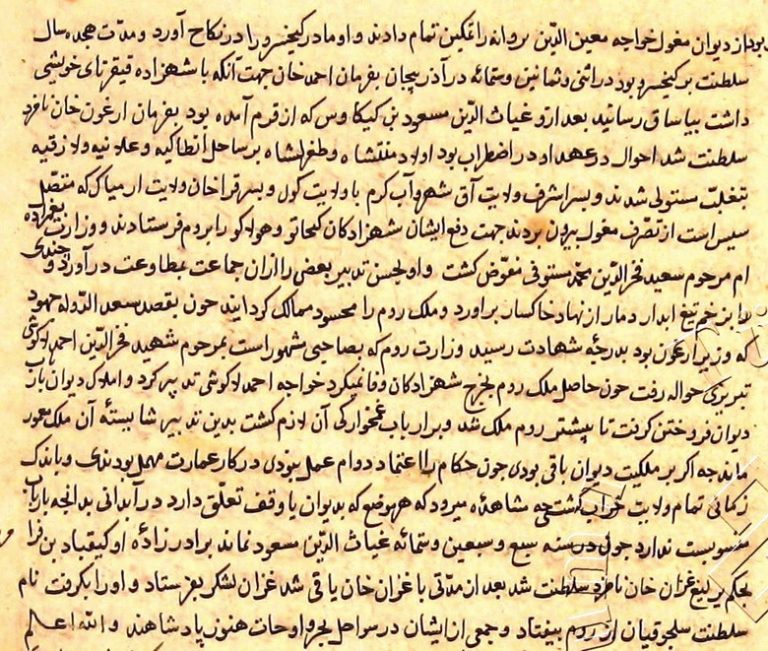 بود از دیوان مغول خواجه معین الدین پروانه را تمکین تمام دادند و او مادر کیخسرو را در نکاح آورد و مدت هجده سال
سلطنت بر کیخسرو بود در اثنی و ثمانین و ستمائه در آذربیجان بفرمان احمد خان جهت آنکه با شهزاده قیقرتای خویشی
داشت بیاساق رسانید بعد ازو غیاث الدین مسعود بن کیکاوس که از قرم آمده بود بفرمان ارغون خان نامزد
سلطنت شد احوال در عهد او در اضطراب بود اولاد منتشاه و طغرلشاه بر ساحل انطاکیه و علانیه و لازقیه
بتغلب مستولی شدند و پسر اشرف ولایت آق شهر و آب کرم با ولایت کول و پسر قراخان ولایت ارمیاک که متصل
سیس است از تصرف مغول بیرون بردند جهت دفع ایشان شهزادکان کیخاتو و هولاکو را بروم فرستادند و وزارت بعمزاده
ام مرحوم سعید فخر الدین محمد مستوفی مفوض کشت و او بحسن تدبیر بعضی را ازان جماعت بمطاوعت در آورد و چندی
را بزخم تیغ ابدار دمار از نهاد خاکسار براورد و ملک روم را محسود ممالک کردانید چون بقصد سعد الدوله جهود
که وزیر ارغون بود بدرجه شهادت رسید وزارت روم که بصاحبی مشهور است بمرحوم شهید فخر الدین احمد لاکوشی
تبریزی حواله رفت چون حاصل ملک روم بخرج شهزادکان وفا نمیکرد خواجه احمد لاکوشی تدبیر کرد و املاک دیوان باز
دیوان فروختن کرفت تا بیشتر روم ملک شد و بر ارباب غمخوارکی آن لازم کشت بدین تدبیر شایسته آن ملک معمور
ماند چه اکر بر ملکیت دیوان باقی بودی چون حکام را اعتماد دوام عمل نبودی در کار عمارت مهمل بودندی و باندک
زمانی تمام ولایت خراب کشتی چه مشاهده میرود که هر موضع که بدیوان یا وقف تعلق دارد در آبدانی بدانچه بارباب
منسوبست ندارد چون در سنه سبع و سبعین و ستمائه غیاث الدین مسعود نماند برادرزاده او کیقباد بن فرا
بحکم یرلیغ غزان خان نامزد سلطنت شد بعد از مدتی با غزان خان یاقی شد غزان لشکر بفرستاد و او را بکرفت نام
سلطنت سلجوقیان از روم بیفتاد و جمعی از ایشان در سواحل بحر و اوجات هنوز پادشاهند و الله اعلم